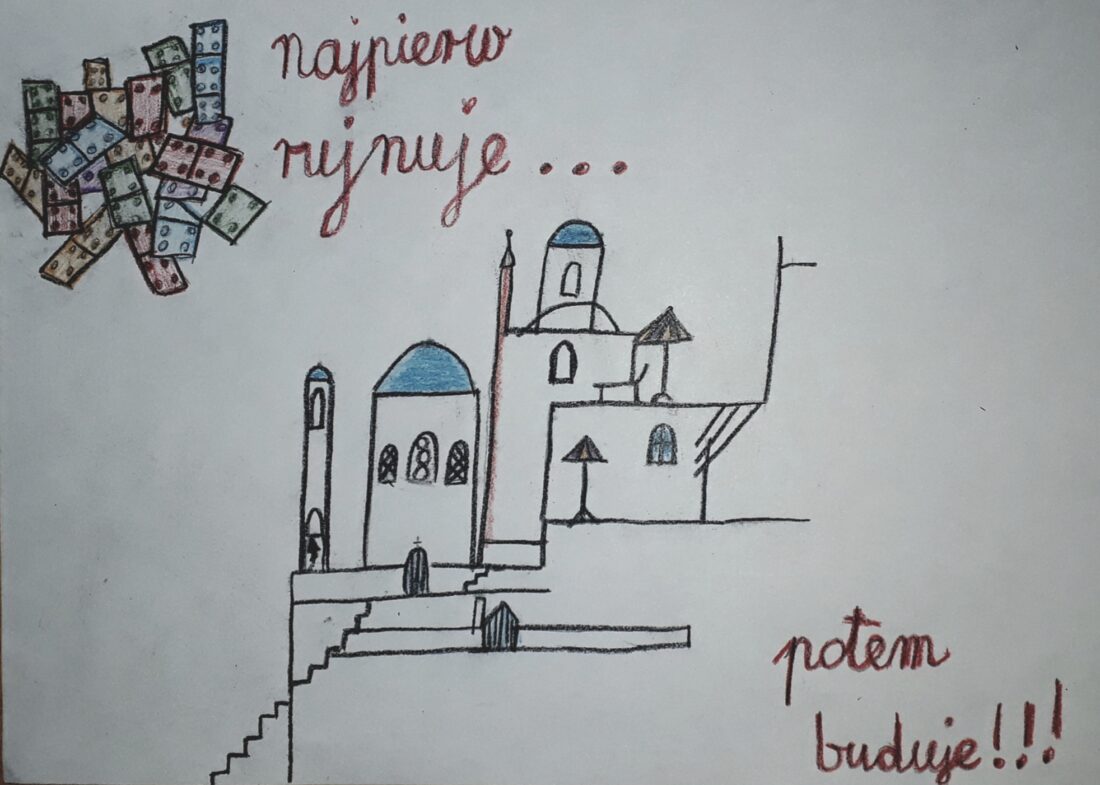 najpierw
rujnuje...
potem
buduje!!!